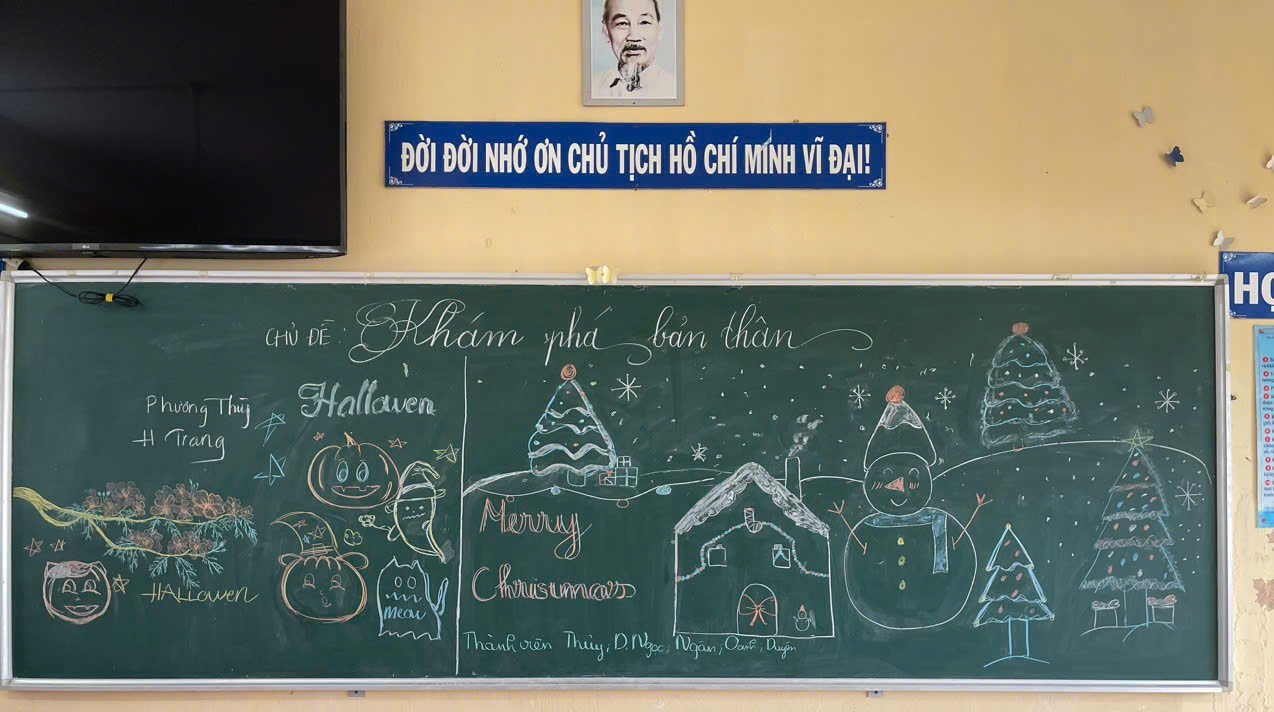 LG
ĐỜI ĐỜI NHỚ ƠN CHỦ TỊCH HỒ CHÍ MINH VĨ ĐẠI!
HỌ
CHỦ ĐỀ: Khám phá bản thân
Phương Thùy
H Trang
Hallowen
HALLowen
meow
Merry
Christmas
Thành viên Thùy, D. Ngọc, Ngân, Oanh, Duyên